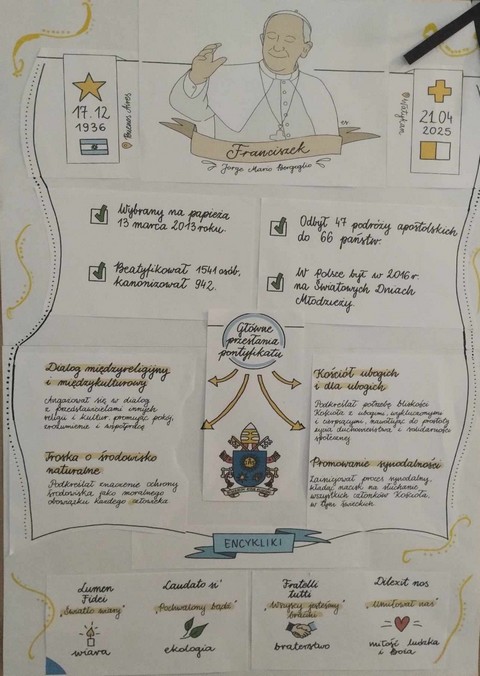 17.12
1936
Buenos Aires
Watykan
21.04
2025
Franciszek
Jorge Mario Bergoglio
Wybrany na papieża
13 marca 2013 roku.
Odbył 47 podróży apostolskich
do 66 państw.
Beatyfikował 1541 osób,
kanonizował 942.
W Polsce był w 2016 r.
na Światowych Dniach
Młodzieży
Główne
przesłania
pontyfikatu
Dialog międzyreligijny
i międzykulturowy
Angażował się w dialog
z przedstawicielami innych
religii i kultur, promując pokój,
zrozumienie i współpracę
Kościół ubogich
i dla ubogich
Podkreślał potrzebę bliskości
Kościoła z ubogimi, wykluczonymi
i cierpiącymi, nawołując do prostoty
życia duchowieństwa i solidarności
społecznej
Troska o środowisko
naturalne
Podkreślał znaczenie ochrony
środowiska jako moralnego
obowiązku każdego człowieka
Promowanie synodalności
Zainicjował proces synodalny,
kładąc nacisk na słuchanie
wszystkich członków Kościoła,
w tym świeckich.
ENCYKLIKI
Lumen
Fidei
"Światło wiary"
wiara
Laudato si'
"Pochwalony bądź"
ekologia
Fratelli
tutti
"Wszyscy jesteśmy
braćmi"
braterstwo
Dilexit nos
"Umiłował nas"
miłość ludzka
i Boża